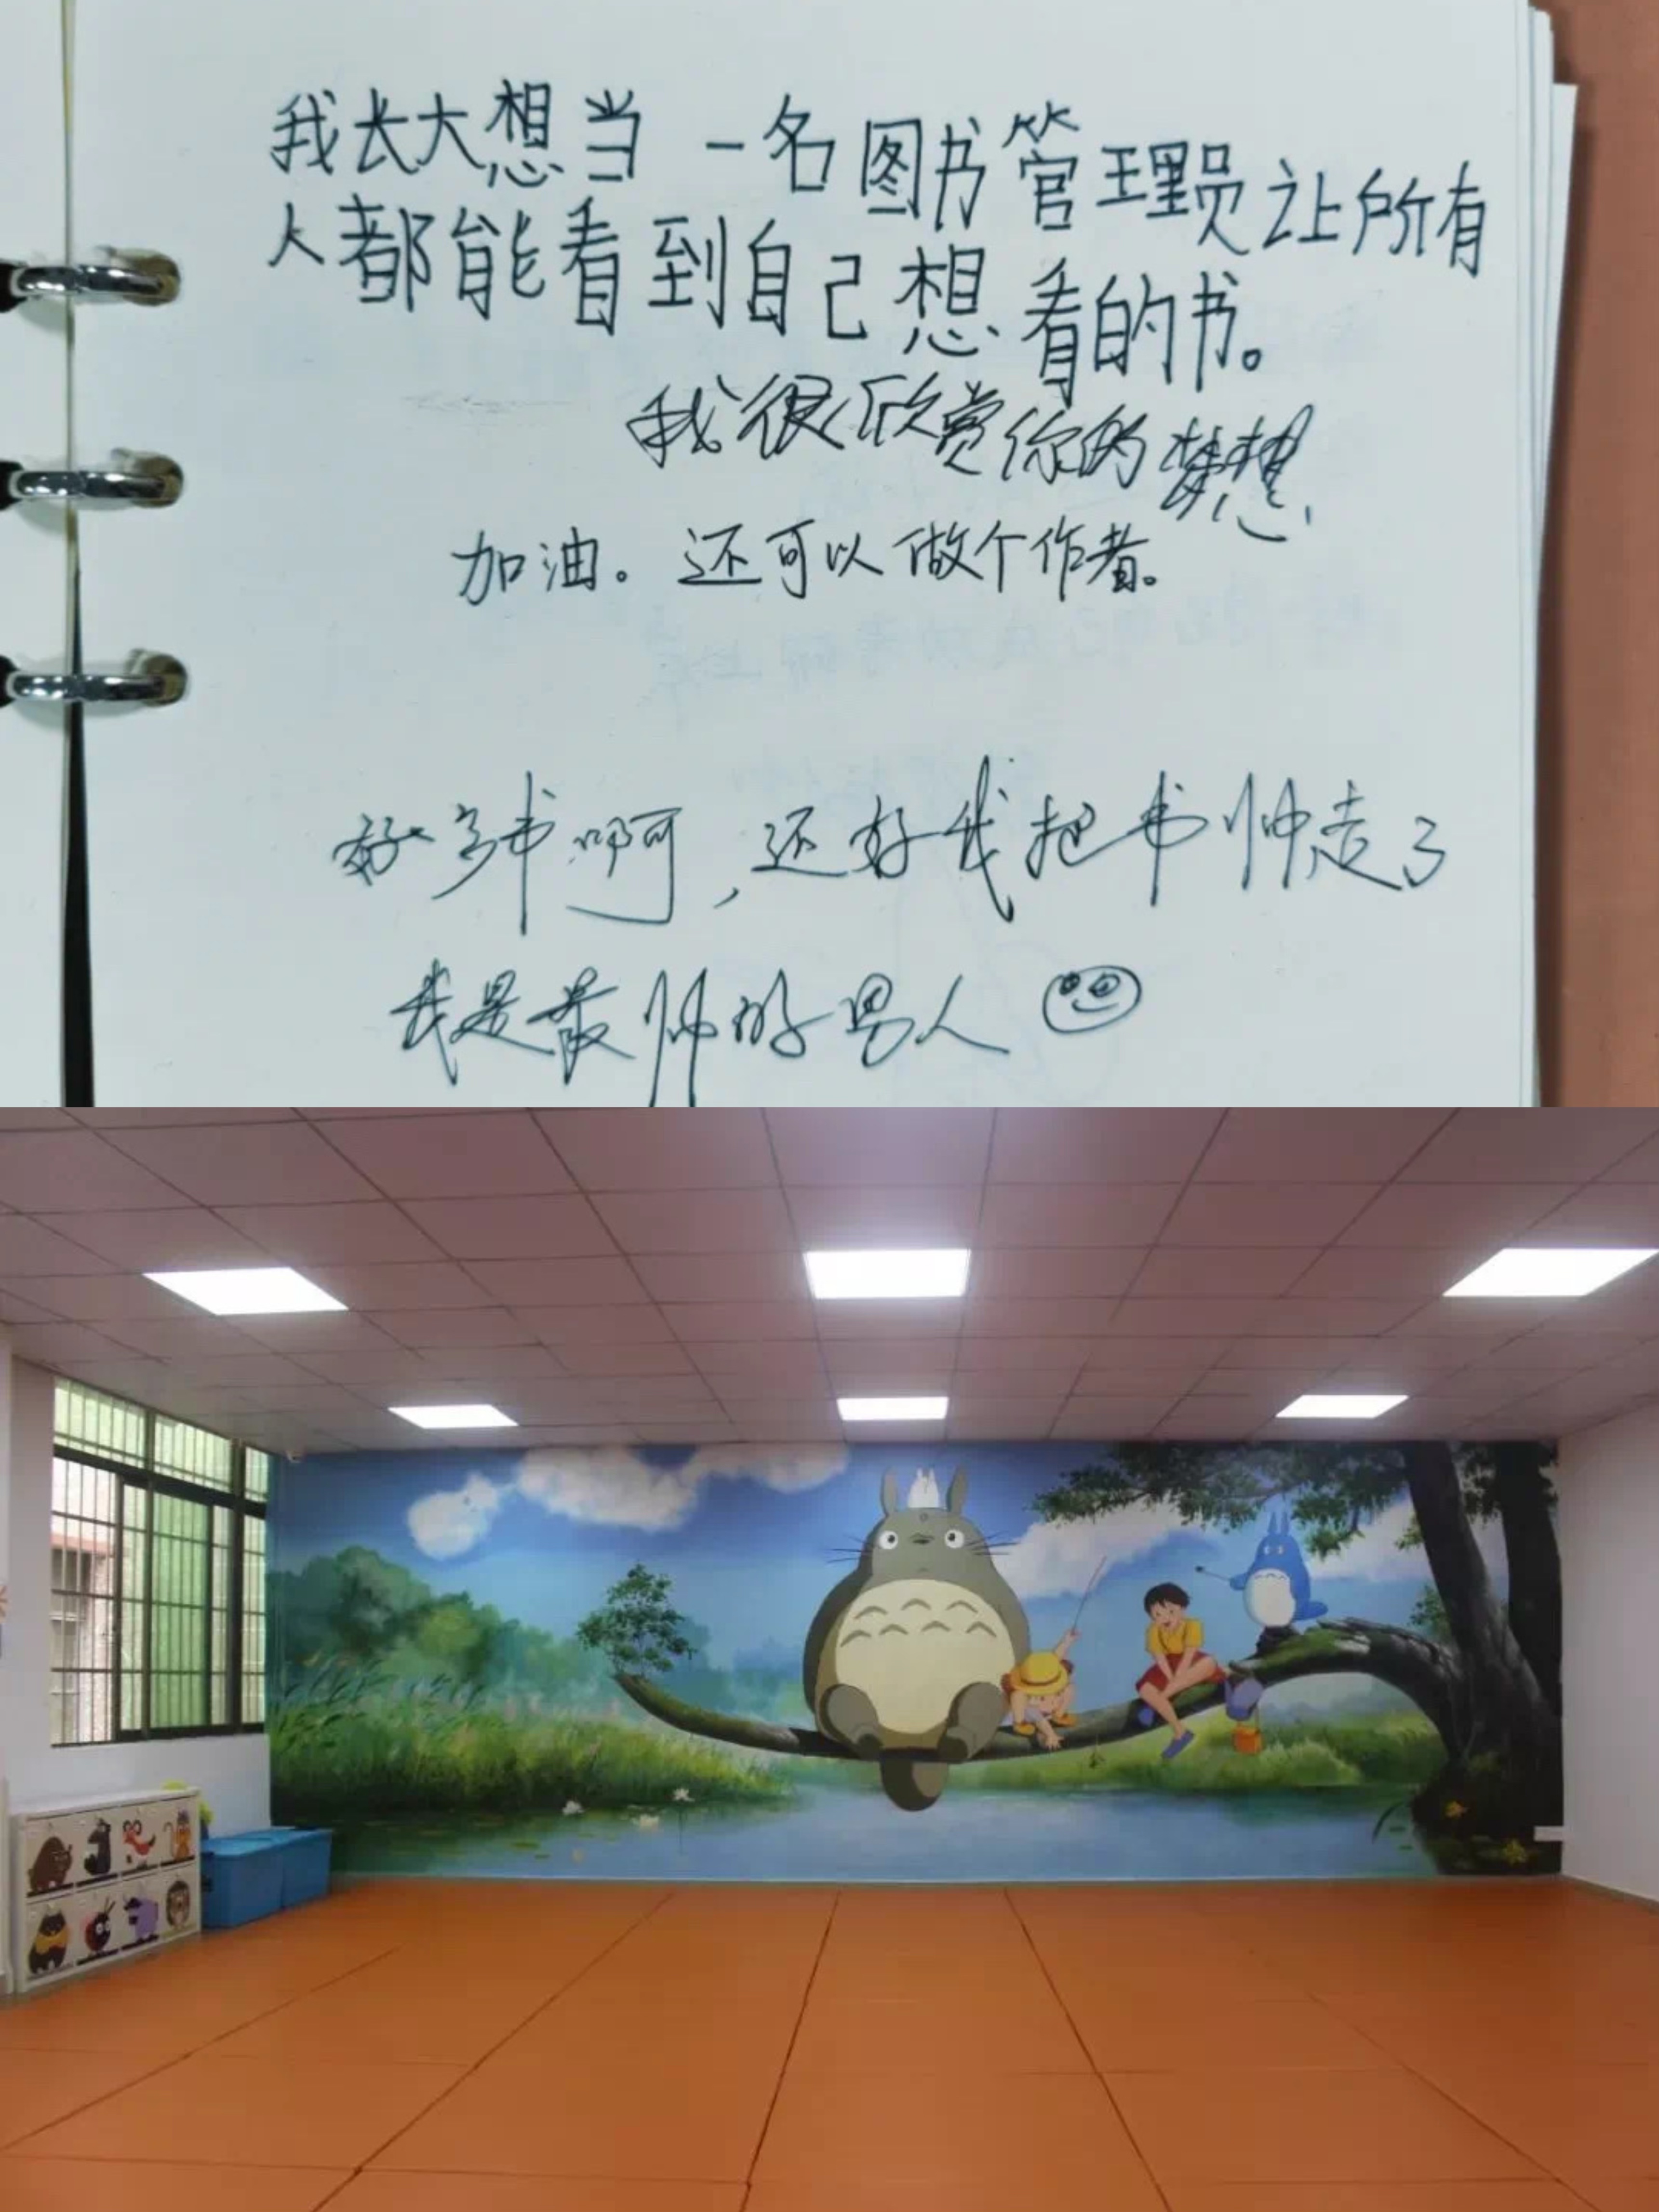 我长大想当一名图书管理员让所有
人都能看到自己想看的书。
我很欣赏你的梦想
加油。还可以做个作者。
好多书啊，还好我把书帅走了
我是最帅的男人